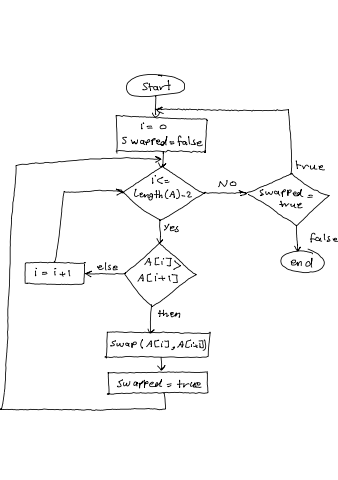 Start
i = 0
Swapped=false
i<=
length(A)-2
NO
swapped =
true
true
false
end
yes
A[i]>
A[i+1]
else
i = i+1
then
swap(A[i], A[i+1])
swapped = true